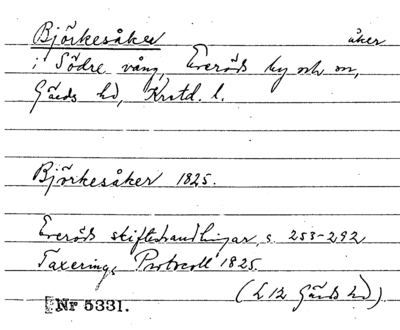 Björkesåker åker
i Södre vång, Everöds by och sn,
Gärds hd, Krstd. l.
Björkesåker 1825.
Everöds skifteshandlingar, s. 253-292
Taxerings Protocoll 1825.
(L 12 Gärds hd)
Nr 5331.